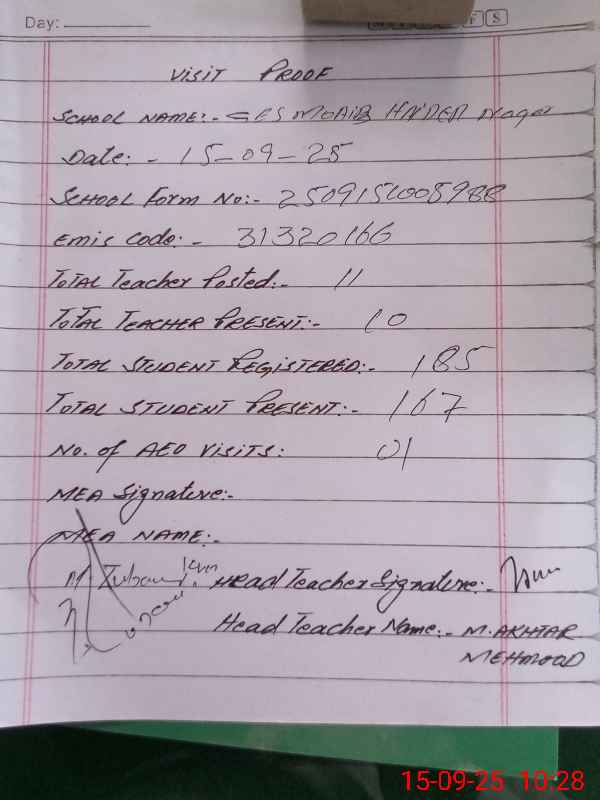 Day:
S
VISIT PROOF
SCHOOL NAME:- GES MOAIB HAIDER Nagar
Date: - 15-09-25
SCHOOL Form No:- 250915008988
Emis Code: - 31320166
TOTAL Teacher Posted:- 11
TOTAL TEACHER PRESENT:- 10
TOTAL STUDENT REGISTERED:- 185
TOTAL STUDENT PRESENT:- 167
No. of AEO VISITS: 01
MEA Signature:-
MEA NAME:-
Head Teacher Signature:-
Head Teacher Name:- M. AKHTAR
MEHMOOD
15-09-25 10:28